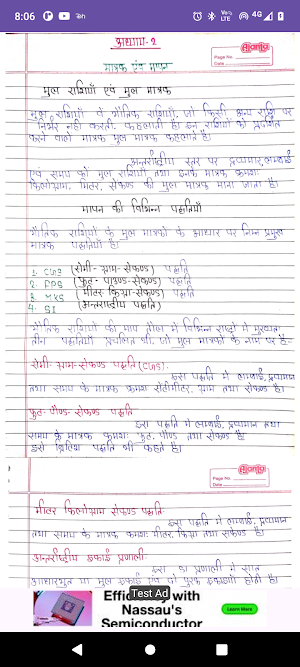 8:06
4G
अध्याय-2
Ajanta
Page No.
Date
मात्रक एवं मापन
मूल राशियाँ एवं मूल मात्रक
मूल राशियाँ वे भौतिक राशियाँ, जो किसी अन्य राशि पर
निर्भर नहीं करती, कहलाती है। इन राशियों को प्रदर्शित
करने वाले मात्रक मूल मात्रक कहलाते है।
अन्तर्राष्ट्रीय स्तर पर द्रव्यमान, लम्बाई
एवं समय को मूल राशियाँ तथा इनके मात्रक क्रमशः
किलोग्राम, मीटर, सेकण्ड को मूल मात्रक माना जाता है।
मापन की विभिन्न पद्धतियाँ
भौतिक राशियों के मूल मात्रकों के आधार पर निम्न प्रमुख
मात्रक पद्धतियाँ है।
1. CGS (सेमी-ग्राम-सेकण्ड) पद्धति
2. FPS (फुट-पाउण्ड-सेकण्ड) पद्धति
3. MKS (मीटर-किग्रा-सेकण्ड) पद्धति
4. SI (अन्तराष्ट्रीय पद्धति)
भौतिक राशियों की माप तौल में विभिन्न राष्ट्रो में मुख्यतः
तीन पद्धतियाँ प्रचलित थी, जो मूल मात्रको के नाम पर है-
सेमी-ग्राम-सेकण्ड पद्धति (CGS):
इस पद्धति में लम्बाई, द्रव्यमान
तथा समय के मात्रक क्रमश सेंटीमीटर, ग्राम तथा सेकण्ड है।
फुट-पौण्ड-सेकण्ड पद्धति
इस पद्धति में लम्बाई, द्रव्यमान तथा
समय के मात्रक क्रमशः फुट, पौण्ड तथा सेकण्ड है
इसे ब्रिटिश पद्धति भी कहते है।
Ajanta
Page No.
Date
मीटर किलोग्राम सेकण्ड पद्धति
इस पद्धति में लम्बाई, द्रव्यमान
तथा समय के मात्रक क्रमशः मीटर, किग्रा तथा सेकण्ड है।
अन्तर्राष्ट्रीय इकाई प्रणाली
इस प्रणाली में सात
आधारभूत या मूल इकाई एवं दो पूरक इकाइयाँ होती है।
Test Ad
Efficiency with
Nassau's
Semiconductor
Learn More